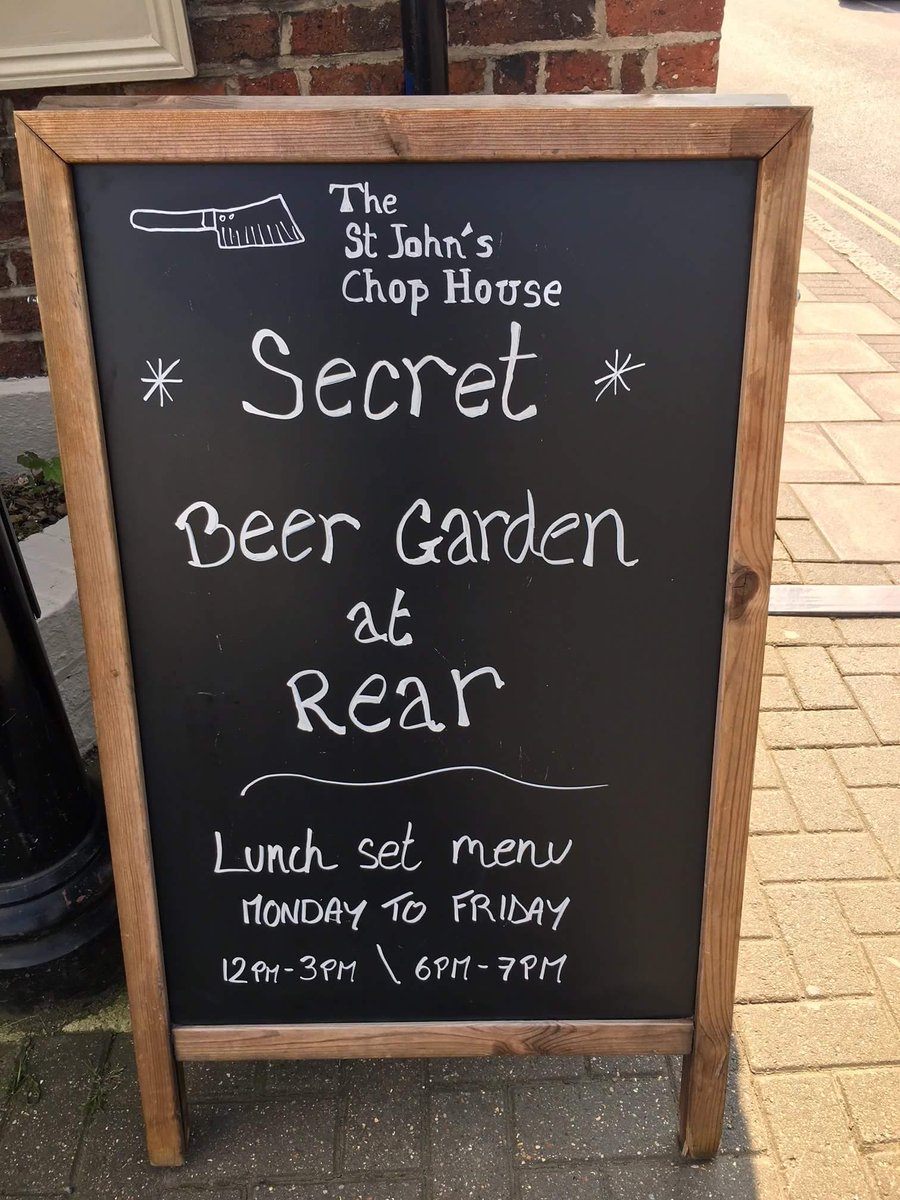 The
St John's
Chop House
* Secret *
Beer Garden
at
Rear
Lunch set menu
MONDAY TO FRIDAY
12PM-3PM \ 6PM-7PM